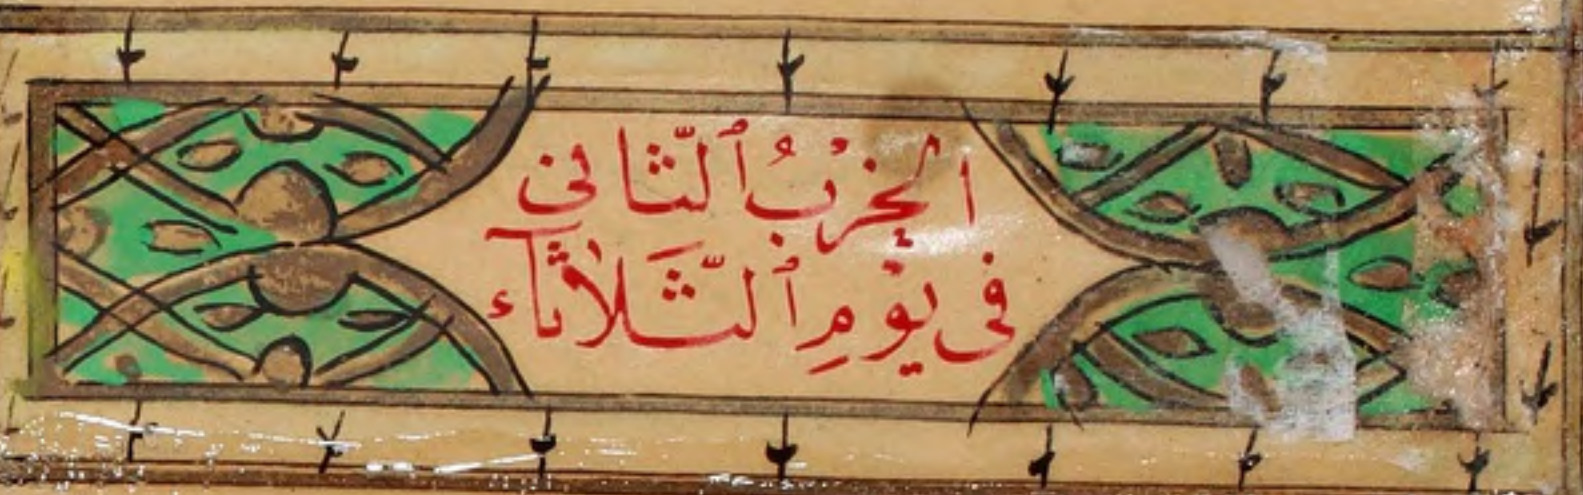 الحِزْبُ ٱلثَّانِي
فِي يَوْمِ ٱلثَّلَاثَاء